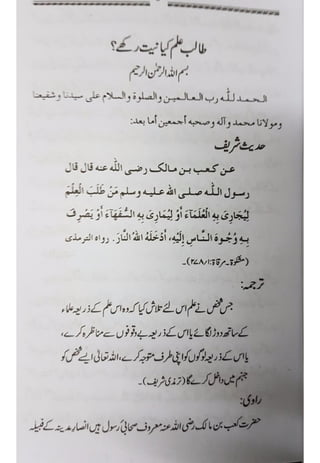 طالب علم کیا نیت رکھے؟
بسم اللہ الرحمٰن الرحیم
الحمد للّٰہ رب العالمین والصلوة والسلام علی سیدنا وشفیعنا
ومولانا محمد وآله وصحبه أجمعین أما بعد:
حدیث شریف
عن کعب بن مالک رضی اللّٰہ عنه قال قال
رسول اللّٰہ صلی اللّٰہ علیہ وسلم مَنْ طَلَبَ الْعِلْمَ
لِیُجَارِیَ بِهِ الْعُلَمَآءَ أَوْ لِیُمَارِیَ بِهِ السُّفَهَآءَ أَوْ یَصْرِفَ
بِهٖ وُجُوهَ النَّاسِ إِلَیْهِ، أَدْخَلَهُ اللّٰهُ النَّارَ. رواہ الترمذی
(مشکوٰۃ۔مرقاۃ:۱/۲۷۸)۔
ترجمہ:
جس شخص نے علم اس لئے تلاش کیا کہ وہ اس علم کے ذریعہ علماء
کے ساتھ دوڑ لگائے یا اس کے ذریعہ بے وقوفوں سے مناظرہ کرے،
یا اس کے ذریعہ لوگوں کو اپنی طرف متوجہ کرے، اللہ تعالیٰ ایسے شخص کو
جہنم میں داخل کرے گا (ترمذی شریف)۔
راوی:
حضرت کعب بن مالک رضی اللہ عنہ معروف صحابیٔ رسول ہیں انصار مدینہ کے قبیلہ